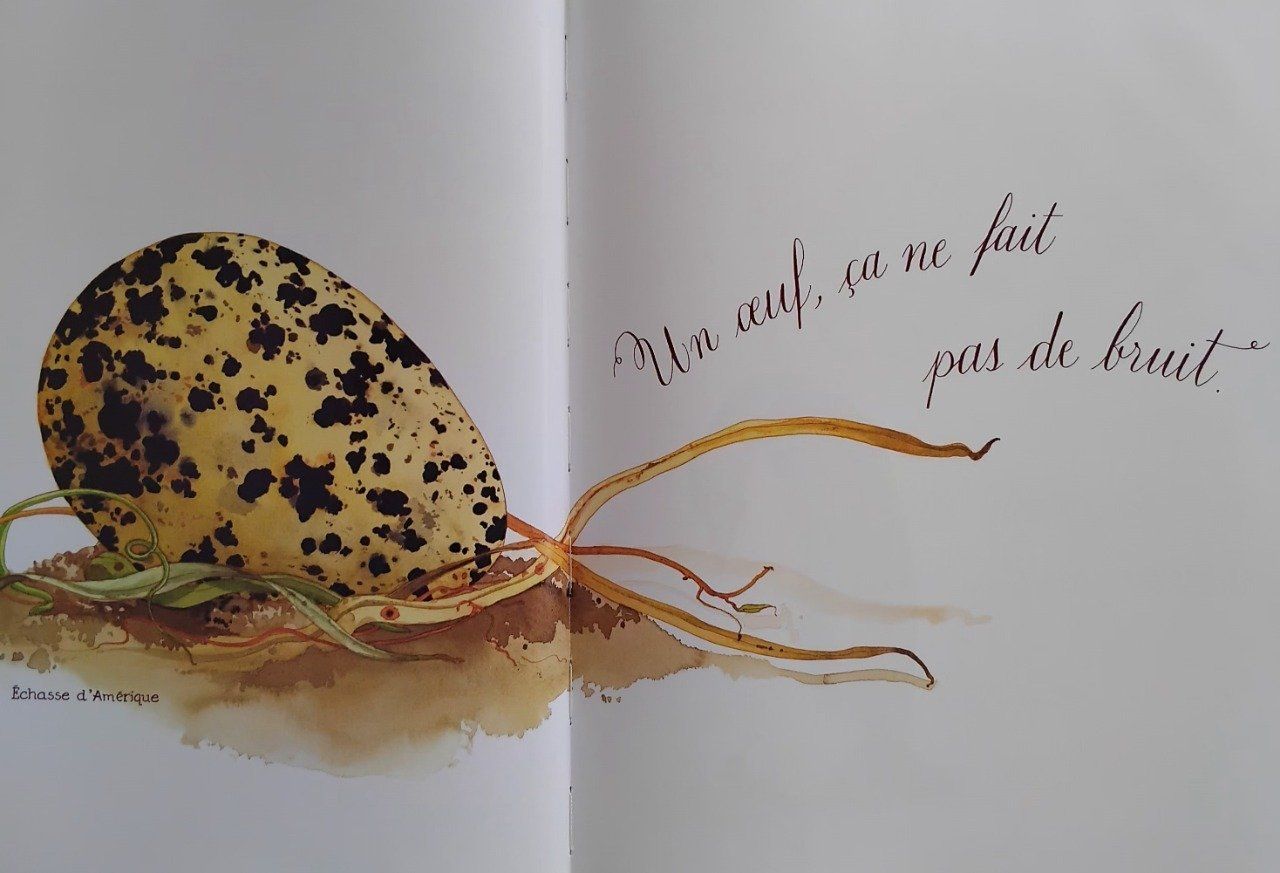 Un œuf, ça ne fait
pas de bruit.
Échasse d'Amérique